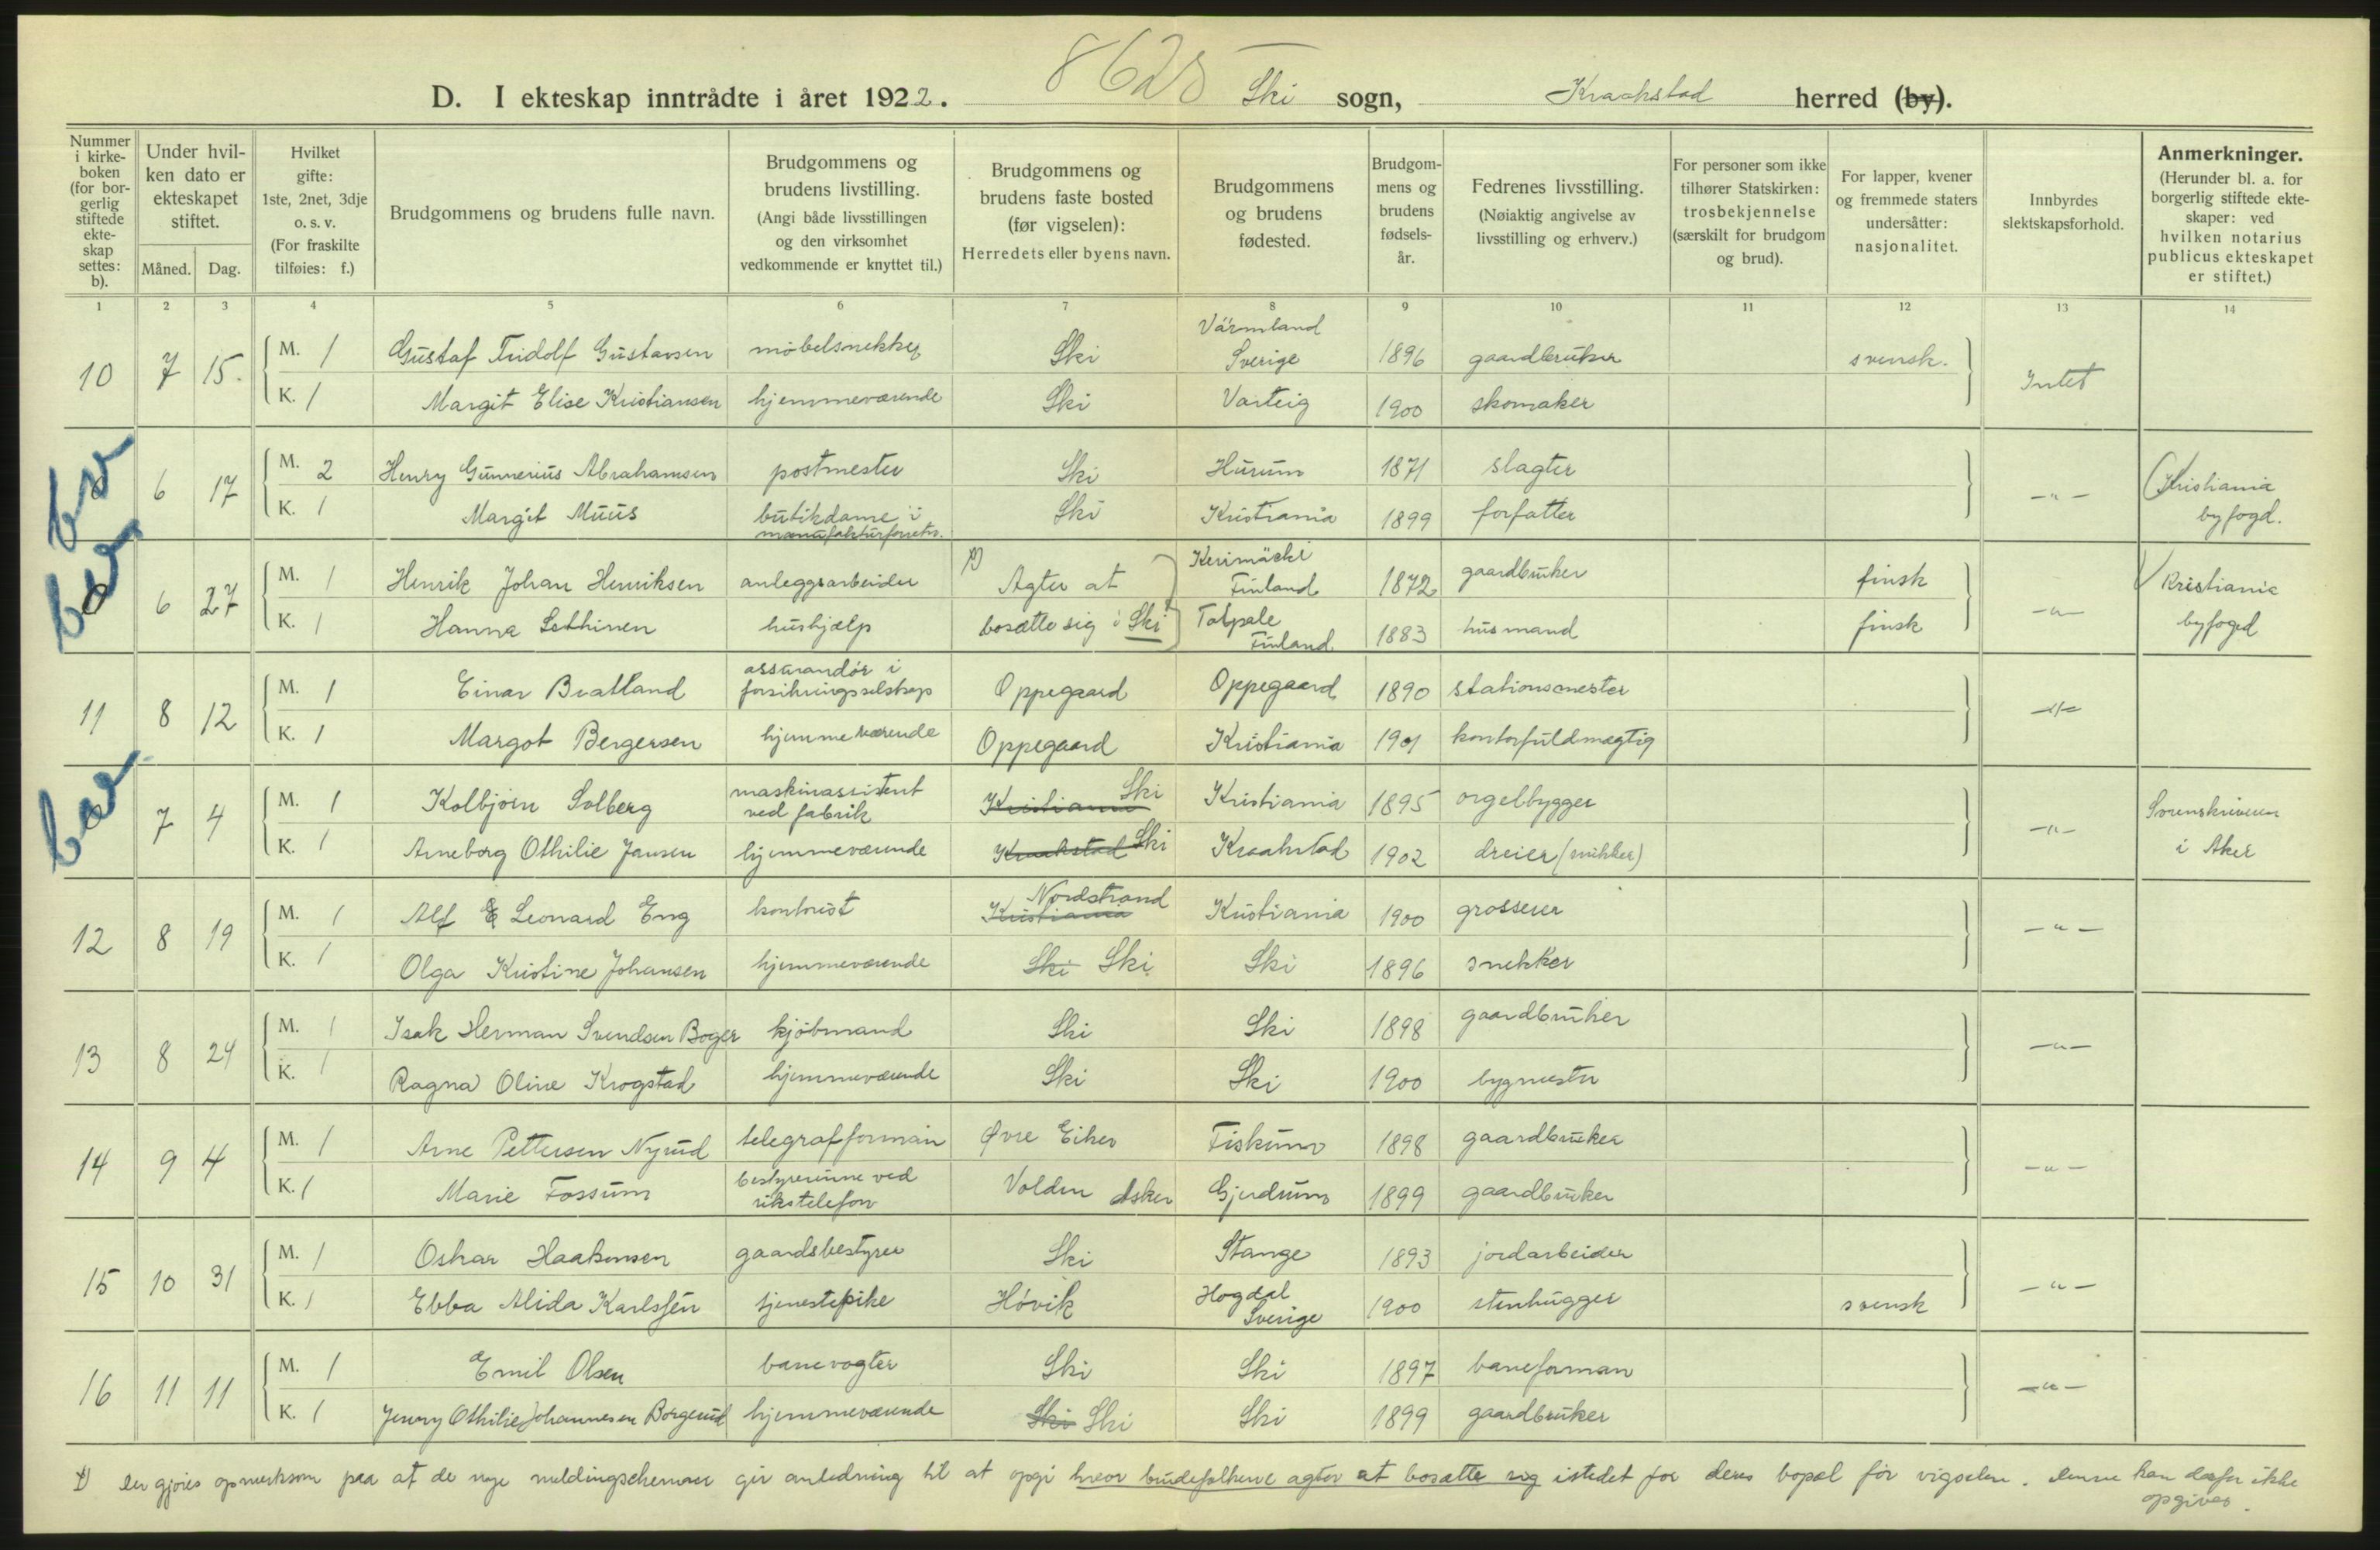 8625
D. I ekteskap inntrådte i året 1922. Ski sogn, Kraakstad herred (by).
Nummer i kirke-boken (for bor-gerlig stiftede ekte-skap settes: b).
Under hvil-ken dato er ekteskapet stiftet.
Måned. Dag.
Hvilket gifte: 1ste, 2net, 3dje o. s. v. (For fraskilte tilføies: f.)
Brudgommens og brudens fulle navn.
Brudgommens og brudens livstilling. (Angi både livsstillingen og den virksomhet vedkommende er knyttet til.)
Brudgommens og brudens faste bosted (før vigselen): Herredets eller byens navn.
Brudgommens og brudens fødested.
Brudgom-mens og brudens fødsels-år.
Fedrenes livsstilling. (Nøiaktig angivelse av livsstilling og erhverv.)
For personer som ikke tilhører Statskirken: trosbekjennelse (særskilt for brudgom og brud).
For lapper, kvener og fremmede staters undersåtter: nasjonalitet.
Innbyrdes slektskapsforhold.
Anmerkninger. (Herunder bl. a. for borgerlig stiftede ekte-skaper: ved hvilken notarius publicus ekteskapet er stiftet.)
1 2 3 4 5 6 7 8 9 10 11 12 13 14
10 7 15. M. 1 Gustaf Fridolf Gustavsen møbelsnekker Ski Värmland Sverige 1896 gaardbruker svensk. Intet
K. 1 Margit Elise Kristiansen hjemmeværende Ski Varteig 1900 skomaker
6 17 M. 2 Henry Gunnerius Abrahamsen postmester Ski Hurum 1871 slagter -"- Kristiania byfogd.
K. 1 Margit Muus butikdame i manufakturforretn. Ski Kristiania 1899 forfatter
6 27 M. 1 Henrik Johan Henriksen anleggsarbeider 1) Agter at Kerimäcki Finland 1872 gaardbruker finsk -"- Kristiania byfoged
K. 1 Hanna Lethinen hushjælp bosætte sig i Ski Finland 1883 husmand finsk
11 8 12 M. 1 Einar Bratland assurandør i forsikringsselskap Oppegaard Oppegaard 1890 stationsmester -"-
K. 1 Margot Bergersen hjemmeværende Oppegaard Kristiania 1901 kontorfuldmægtig
7 4 M. 1 Kolbjørn Solberg maskinassistent ved fabrik Kristiania Ski Kristiania 1895 orgelbygger -"- Sorenskriveren i Aker
K. 1 Arneborg Othilie Jansen hjemmeværende Kraakstad Ski Kraakstad 1902 dreier (snikker)
12 8 19 M. 1 Alf E Leonard Eng kontorist Kristiania Nordstrand Kristiania 1900 grosserer -"-
K. 1 Olga Kristine Johansen hjemmeværende Ski Ski Ski 1896 snekker
13 8 24 M. 1 Isak Herman Svendsen Boger kjøbmand Ski Ski 1898 gaardbruker -"-
K. 1 Ragna Oline Krogstad hjemmeværende Ski Ski 1900 bygmester
14 9 4 M. 1 Arne Pettersen Nyrud telegrafforman Øvre Eiker Fiskum 1898 gaardbruker -"-
K. 1 Marie Fossum bestyrerinne ved rikstelefon Volden Asker Gjerdrum 1899 gaardbruker
15 10 31 M. 1 Oskar Haakensen gaardsbestyrer Ski Stange 1893 jordarbeider -"-
K. 1 Ebba Alida Karlssén tjenestepike Høvik Hogdal Sverige 1900 stenhugger svensk
16 11 11 M. 1 Emil Olsen banevogter Ski Ski 1897 baneforman -"-
K. 1 Jenny Othilie Johannesen Borgerud hjemmeværende Ski Ski Ski 1899 gaardbruker
1) Der gjøres opmerksom paa at de nye meldingschemaer gir anledning til at opgi hvor brudefolkene agter at bosætte sig istedet for deres bopæl før vigselen. Denne kan derfor ikke
opgives.